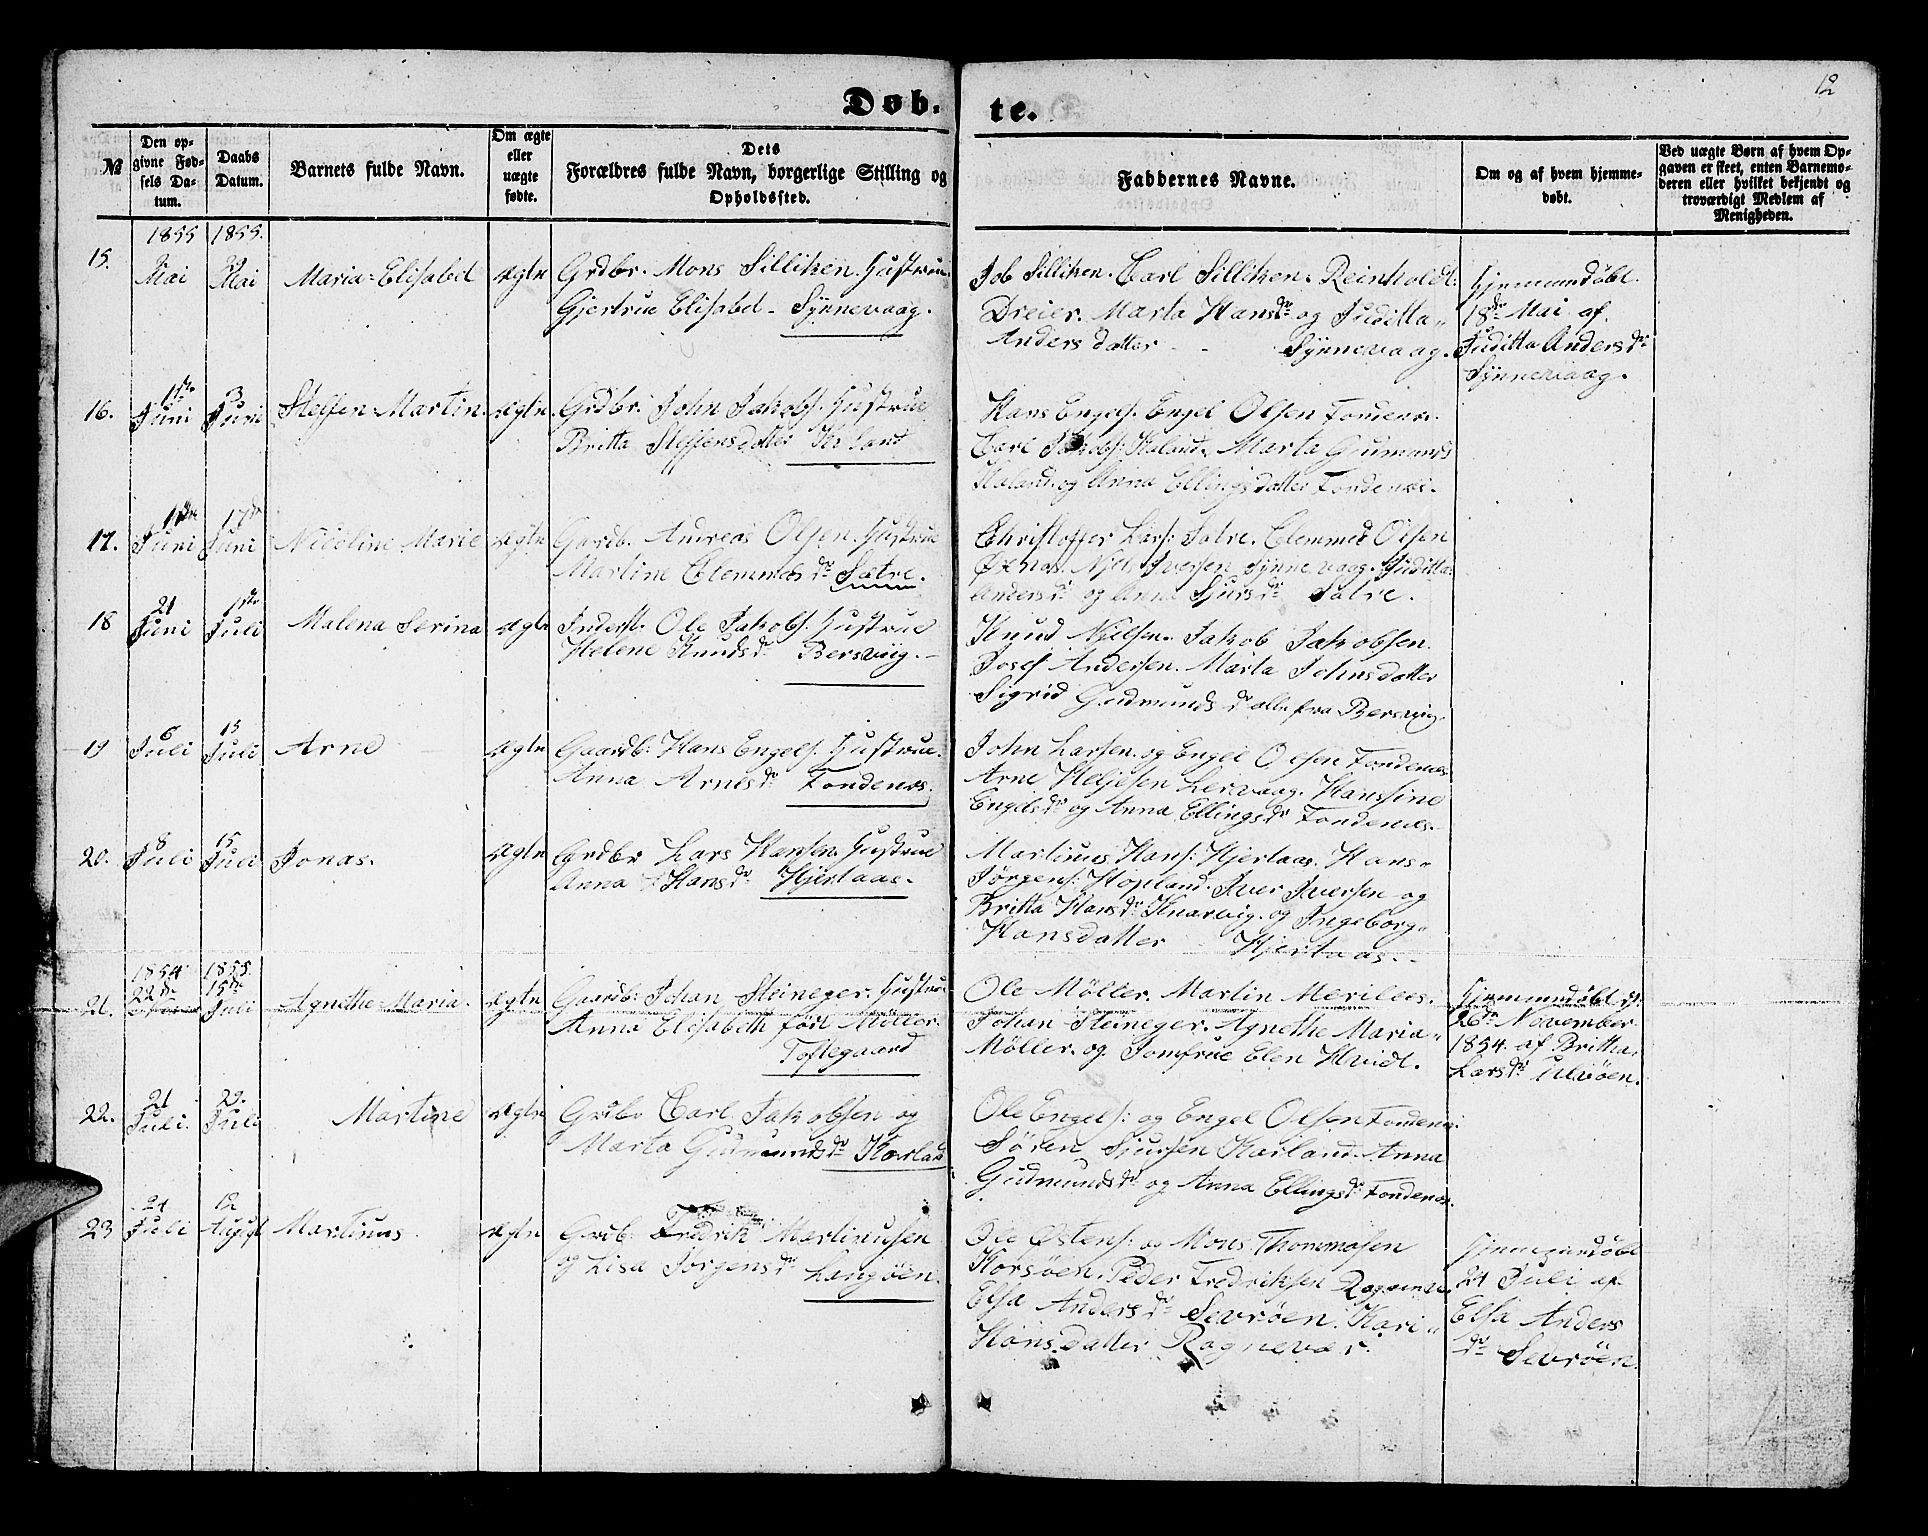 12
Døb- te.
№
Den op-
givne Fød-
sels Da-
tum.
Daabs
Datum.
Barnets fulde Navn.
Om ægte
eller
uægte
fødte.
Dets
Forældres fulde Navn, borgerlige Stilling og
Opholdssted.
Faddernes Navne.
Om og af hvem hjemme-
døbt.
Ved uægte Børn af hvem Op-
gaven er skeet, enten Barnemo-
deren eller hvilket bekjendt og
troværdigt Medlem af
Menigheden.
1855 1855.
15. Mai Mai Maria-Elisabed Ægte Grdbr. Mons Silliken. Hustrue
Gjertrue Elisabed - Synnevaag.
Job Silliken. Carl Silliken. Reinholdt
Dreier. Marta Hansdr og Juditta
Andersdatter - Synnevaag.
Hjemmedøbt
18de Mai af
Juditta Andersdr
Synnevaag.
16. 1ste Juni 3 Juni Steffen-Martin. Ægte. Grdbr. John Jakobs. Hustrue
Britta Steffensdatter
Hans Engels. Engel Olsen Fondenæs.
Carl Jakobs: Marta
og Anna Ellingsdatter Fondenæs.
17. Juni 17de Juni Nicoline Marie Ægte Gardb. Andreas Olsen. Hustrue
Martine Clemmedsdr Sætre.
Christoffer Lars: Sætre. Clemmed Olsen
Iversen Synnevaag. Juditta
Andersdr og Anna Sjursdr Sætre.
18 21 Juni 1ste Juli Malena Serina Ægte Inderst. Ole Jakobs. Hustrue
Helene Knudsdr Bersvig.
Knud Nielsen. Jakob Jakobsen
Josef Andersen. Marta Johnsdatter
Sigrid Gudmundsdr alle fra Bersvig.
19 6 Juli 15 Juli Arne Ægte Gaardb: Hans Engels. Hustrue
Anna Arnesdr Fondenæs.
John Larsen. og Engel Olsen Fondenæs
Arne Heljesen Leirvaag. Hansine
Engelsdr og Anna Ellingsdr Fondenæs.
20. 8 Juli 15 Juli Jonas. Ægte Grdbr Lars Hansen. Hustrue
Anna Hansdr Hjertaas.
Martinus Hans: Hjertaas. Hans
Jørgens: Hopland. Iver Iversen og
Britta Hansdr Knarvig. og Ingeborg
Hansdatter Hjertaas.
1854 1855.
21. 22de 15de Juli Agnethe-Maria. Ægte Gaardb: Johan Steineger. Hustrue
Anna Elisabeth født Møller.
Toftegaard
Ole Møller. Martin Merilees.
Johan Steineger. Agnethe Maria
Møller. og Jomfrue Elen Hvidt.
Hjemmedøbt
26de November
1854. af Britha
Larsdr Ulvøen.
22. 21 Juli. 29. Juli Martine Ægte Grdbr Carl Jakobsen og
Marta Gudmundsdr
Ole Engels: og Engel Olsen Fondenæs.
Søren Sjursen Anna
Gudmundsdr og Anna Ellingsdr Fondenæs.
23 24 Juli 12 August Martinus Ægte Grdb: Fredrik Martinusen
og Lisa Jørgensdr Langøen.
Ole Østens: og Mons Thommasen
Korsøen. Peder Fredriksen Ragnevær.
Elsa Andersdr Sevrøen. Kari
Hansdatter Ragnevær.
Hjemmedøbt
24 Juli af
Elsa Anders
dr Sevrøen.